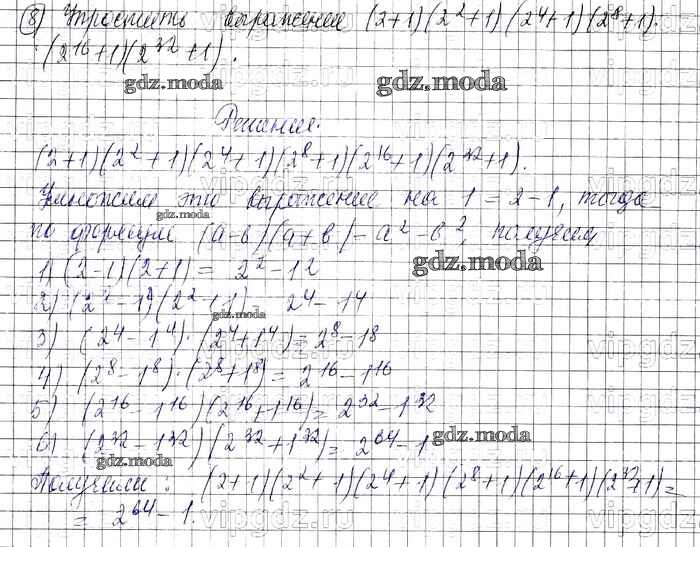 8) Упростить выражение (2+1)(2²+1)(2⁴+1)(2⁸+1)·
·(2¹⁶+1)(2³²+1).
gdz.moda
gdz.moda
Решение.
(2+1)(2²+1)(2⁴+1)(2⁸+1)(2¹⁶+1)(2³²+1).
Умножим это выражение на 1=2-1, тогда
gdz.moda
по формуле (a-b)(a+b)=a²-b², получим
gdz.moda
1) (2-1)(2+1) = 2²-1²
2) (2²-1²)(2²+1²) = 2⁴-1⁴
gdz.moda
3) (2⁴-1⁴)·(2⁴+1⁴)=2⁸-1⁸
4) (2⁸-1⁸)·(2⁸+1⁸)= 2¹⁶-1¹⁶
vipgdz
5) (2¹⁶-1¹⁶)(2¹⁶+1¹⁶)= 2³²-1³²
6) (2³²-1³²)(2³²+1³²)= 2⁶⁴-1
gdz.moda
gdz.moda
Получили: (2+1)(2²+1)(2⁴+1)(2⁸+1)(2¹⁶+1)(2³²+1)=
= 2⁶⁴-1.
vipgdz.ru